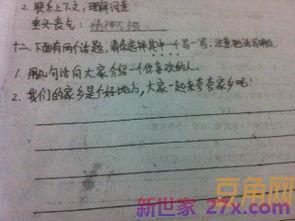 2. 联系上下文,理解词意
垂头丧气: 精神不振
十二、下面有两个话题,请你选择其中一个写一写,注意把话写通顺。
1. 用几句话向大家介绍一个你喜欢的人。
2. 我们的家乡是个好地方,大家一起来夸夸家乡吧!
豆角网
新世家 27x.com